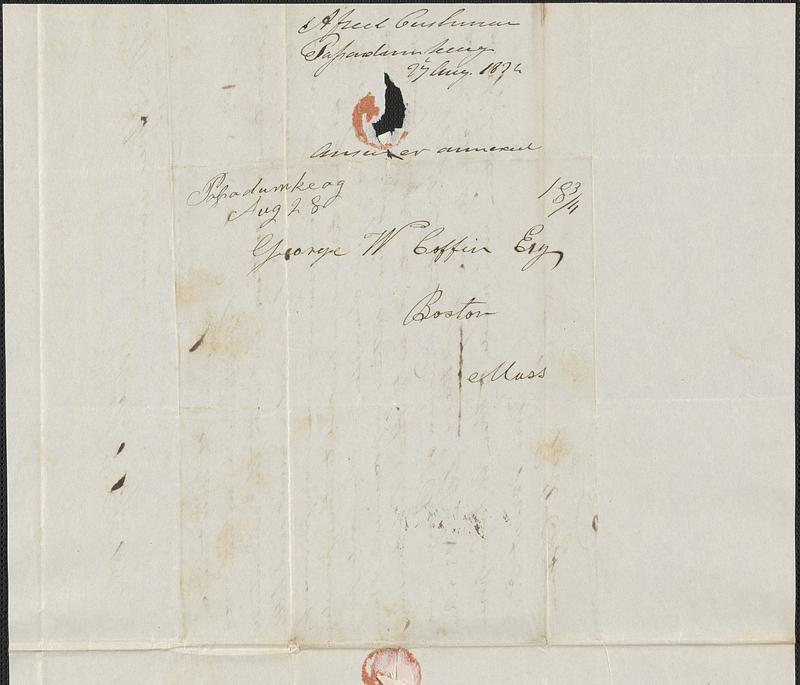 Alfred Cushman
Passadumkeag
27 Aug. 183
Answer annexed
Passadumkeag
Aug 28
18 3/4
George W Coffin Esq
Boston
Mass